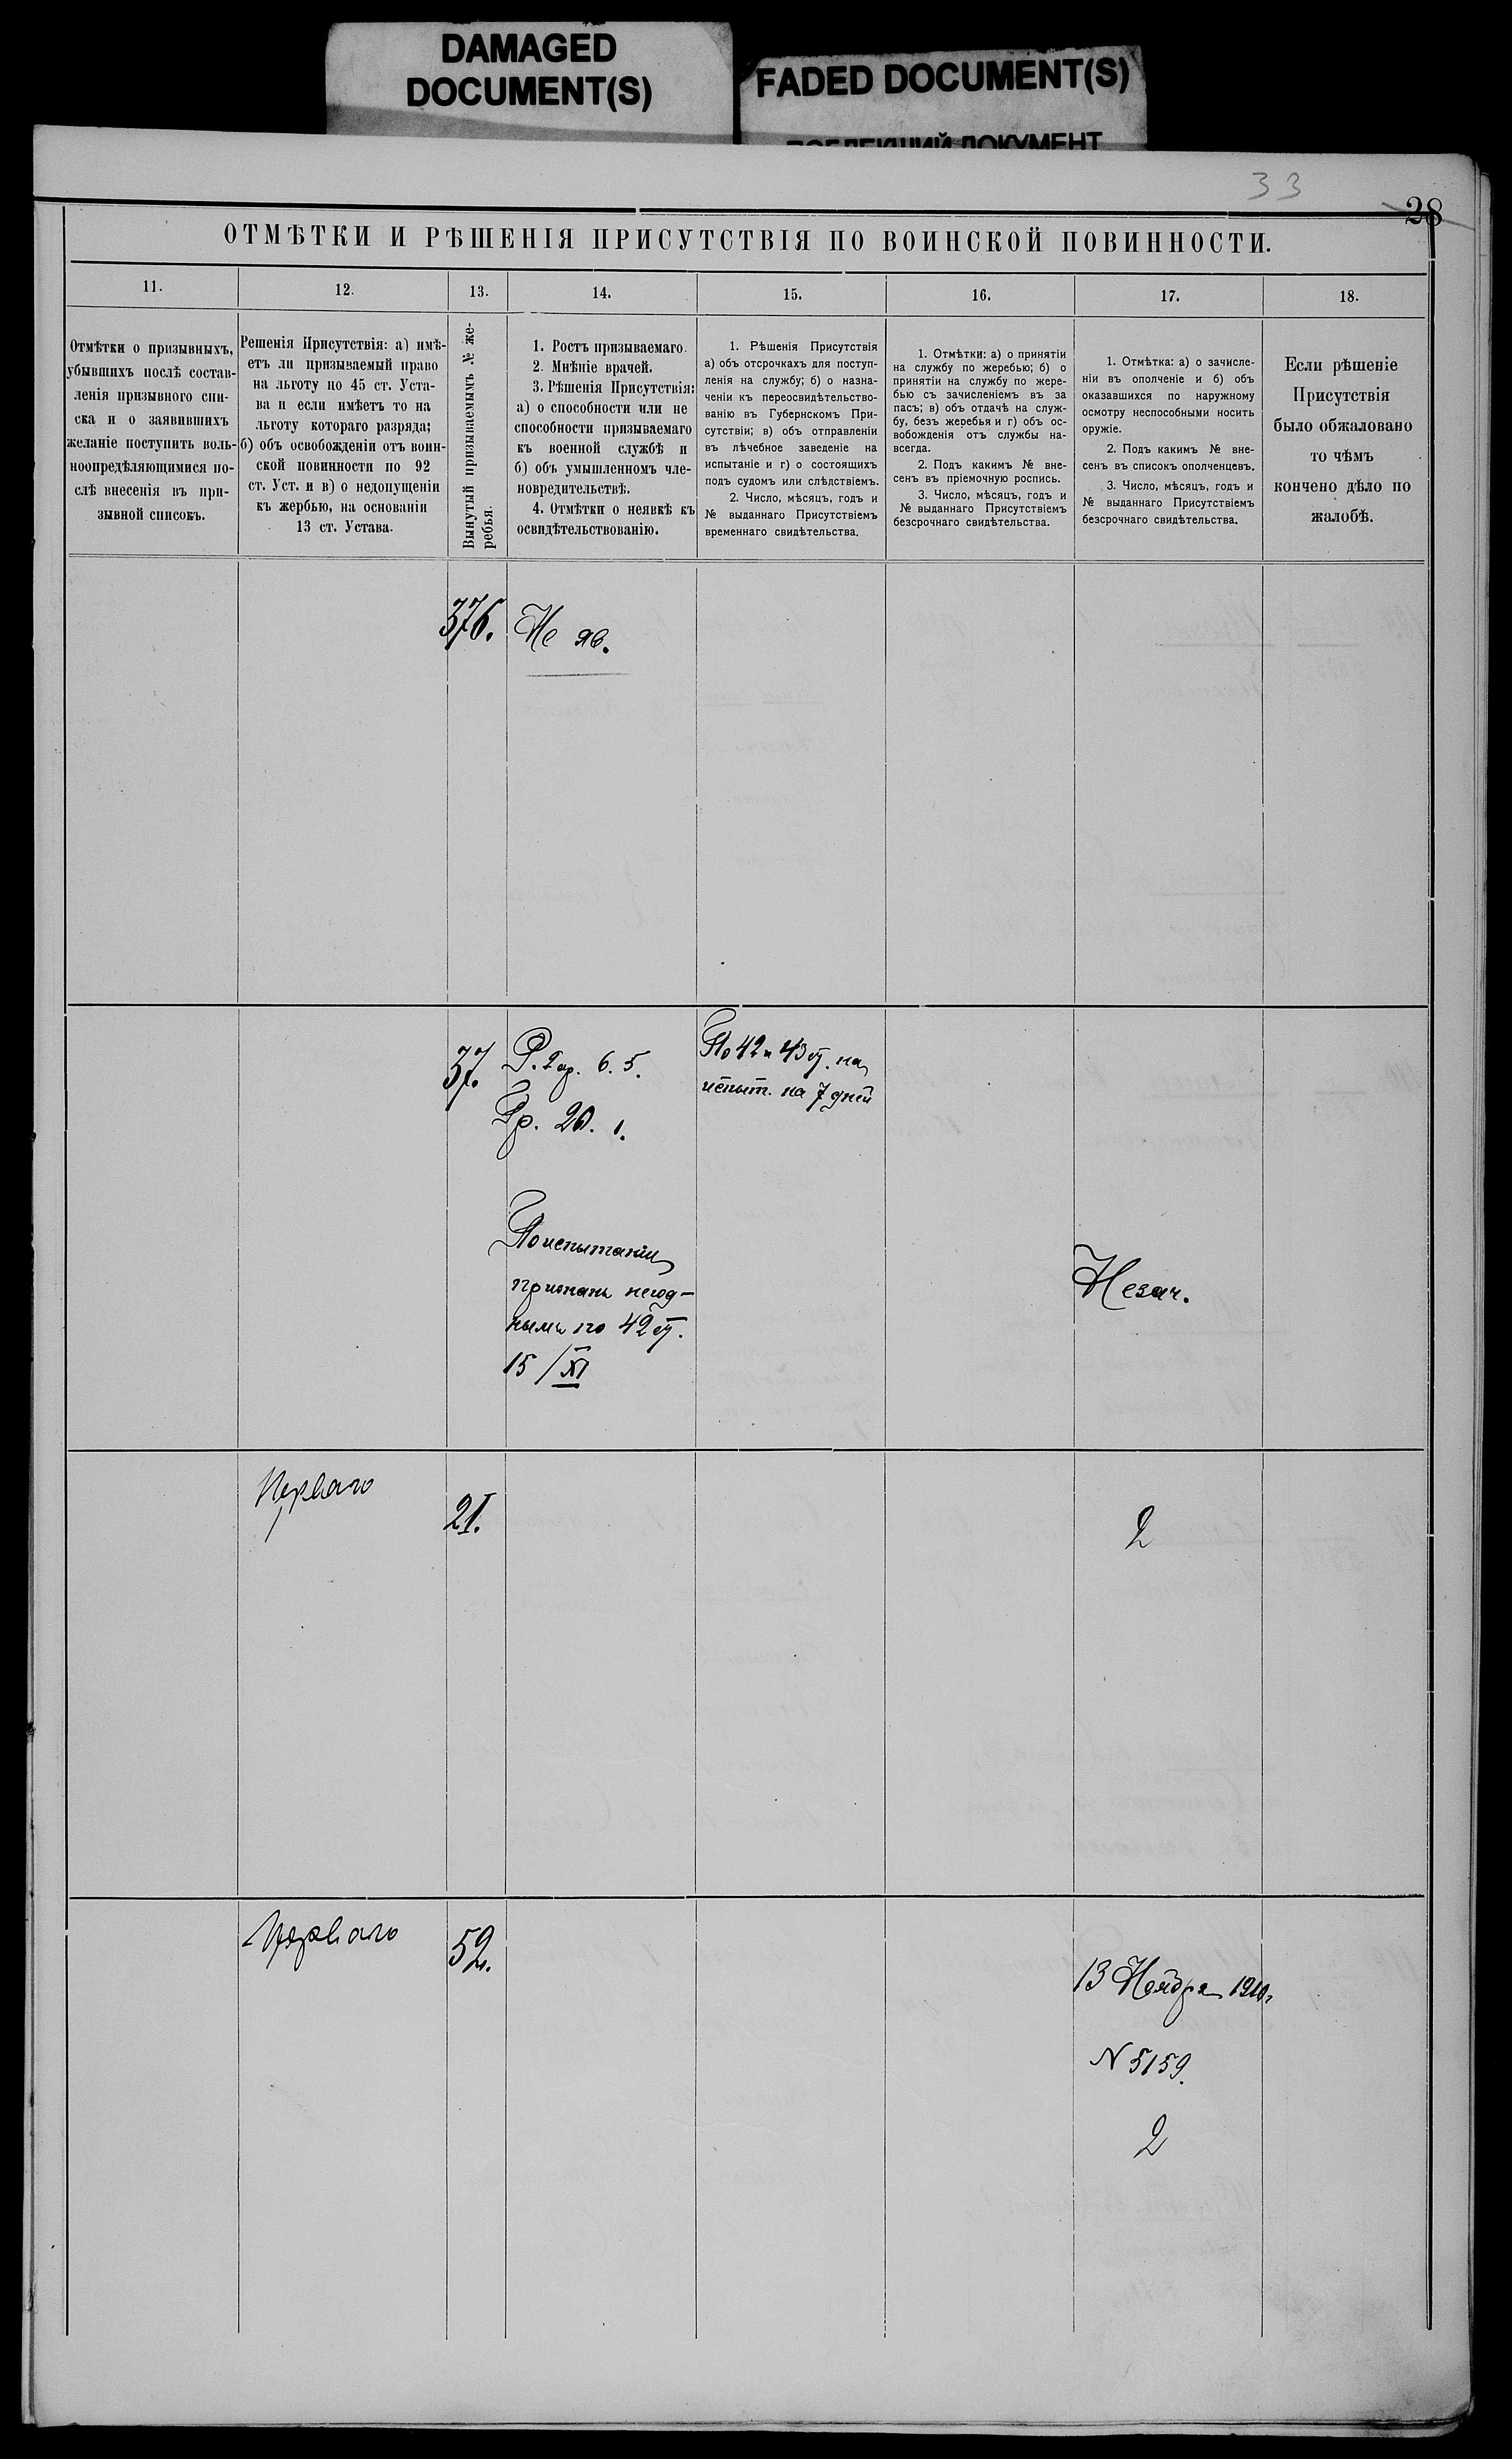 DAMAGED
DOCUMENT(S)
FADED DOCUMENT(S)
ПОБЛЕКШИЙ ДОКУМЕНТ
33
28
ОТМѢТКИ И РѢШЕНІЯ ПРИСУТСТВІЯ ПО ВОИНСКОЙ ПОВИННОСТИ.
11.
12.
13.
14.
15.
16.
17.
18.
Отмѣтки о призывныхъ,
убывшихъ послѣ состав-
ленія призывного спи-
ска и о заявившихъ
желаніе поступить воль-
ноопредѣляющимися по-
слѣ внесенія въ при-
зывной списокъ.
Решенія Присутствія: а) имѣ-
етъ ли призываемый право
на льготу по 45 ст. Уста-
ва и если имѣетъ то на
льготу котораго разряда;
б) объ освобожденіи отъ воин-
ской повинности по 92
ст. Уст. и в) о недопущеніи
къ жербью, на основаніи
13 ст. Устава.
Вынутый призываемымъ № же-
ребья.
1. Ростъ призываемаго.
2. Мнѣніе врачей.
3. Рѣшенія Присутствія:
а) о способности или не
способности призываемаго
къ военной службѣ и
б) объ умышленномъ чле-
новредительствѣ.
4. Отмѣтки о неявкѣ къ
освидѣтельствованію.
1. Рѣшенія Присутствія
а) объ отсрочкахъ для поступ-
ленія на службу; б) о назна-
ченіи къ переосвидѣтельство-
ванію въ Губернскомъ При-
сутствіи; в) объ отправленіи
въ лѣчебное заведеніе на
испытаніе и г) о состоящихъ
подъ судомъ или слѣдствіемъ.
2. Число, мѣсяцъ, годъ и
№ выданнаго Присутствіемъ
временнаго свидѣтельства.
1. Отмѣтки: а) о принятіи
на службу по жеребью; б) о
принятіи на службу по жере-
бью съ зачисленіемъ въ за
пасъ; в) объ отдачѣ на служ-
бу, безъ жеребья и г) объ ос-
вобожденія отъ службы на-
всегда.
2. Подъ какимъ № вне-
сенъ въ пріемочную роспись.
3. Число, мѣсяцъ, годъ и
№ выданнаго Присутствіемъ
безсрочнаго свидѣтельства.
1. Отмѣтка: а) о зачисле-
ніи въ ополченіе и б) объ
оказавшихся по наружному
осмотру неспособными носить
оружіе.
2. Подъ какимъ № вне-
сенъ въ списокъ ополченцевъ.
3. Число, мѣсяцъ, годъ и
№ выданнаго Присутствіемъ
безсрочнаго свидѣтельства.
Если рѣшеніе
Присутствія
было обжаловано
то чѣмъ
кончено дѣло по
жалобѣ.
376.
Не яв.
37.
Р. 2 ар. 6. 5.
Гр. 20. 1.
По испытаніи
признанъ негод-
нымъ по 42 ст.
15/XI
По 42 и 43 ст. на
испыт. на 7 дней
Незач.
Перваго
21.
2
Перваго
52.
13 Ноября 1910 г
N 5159.
2